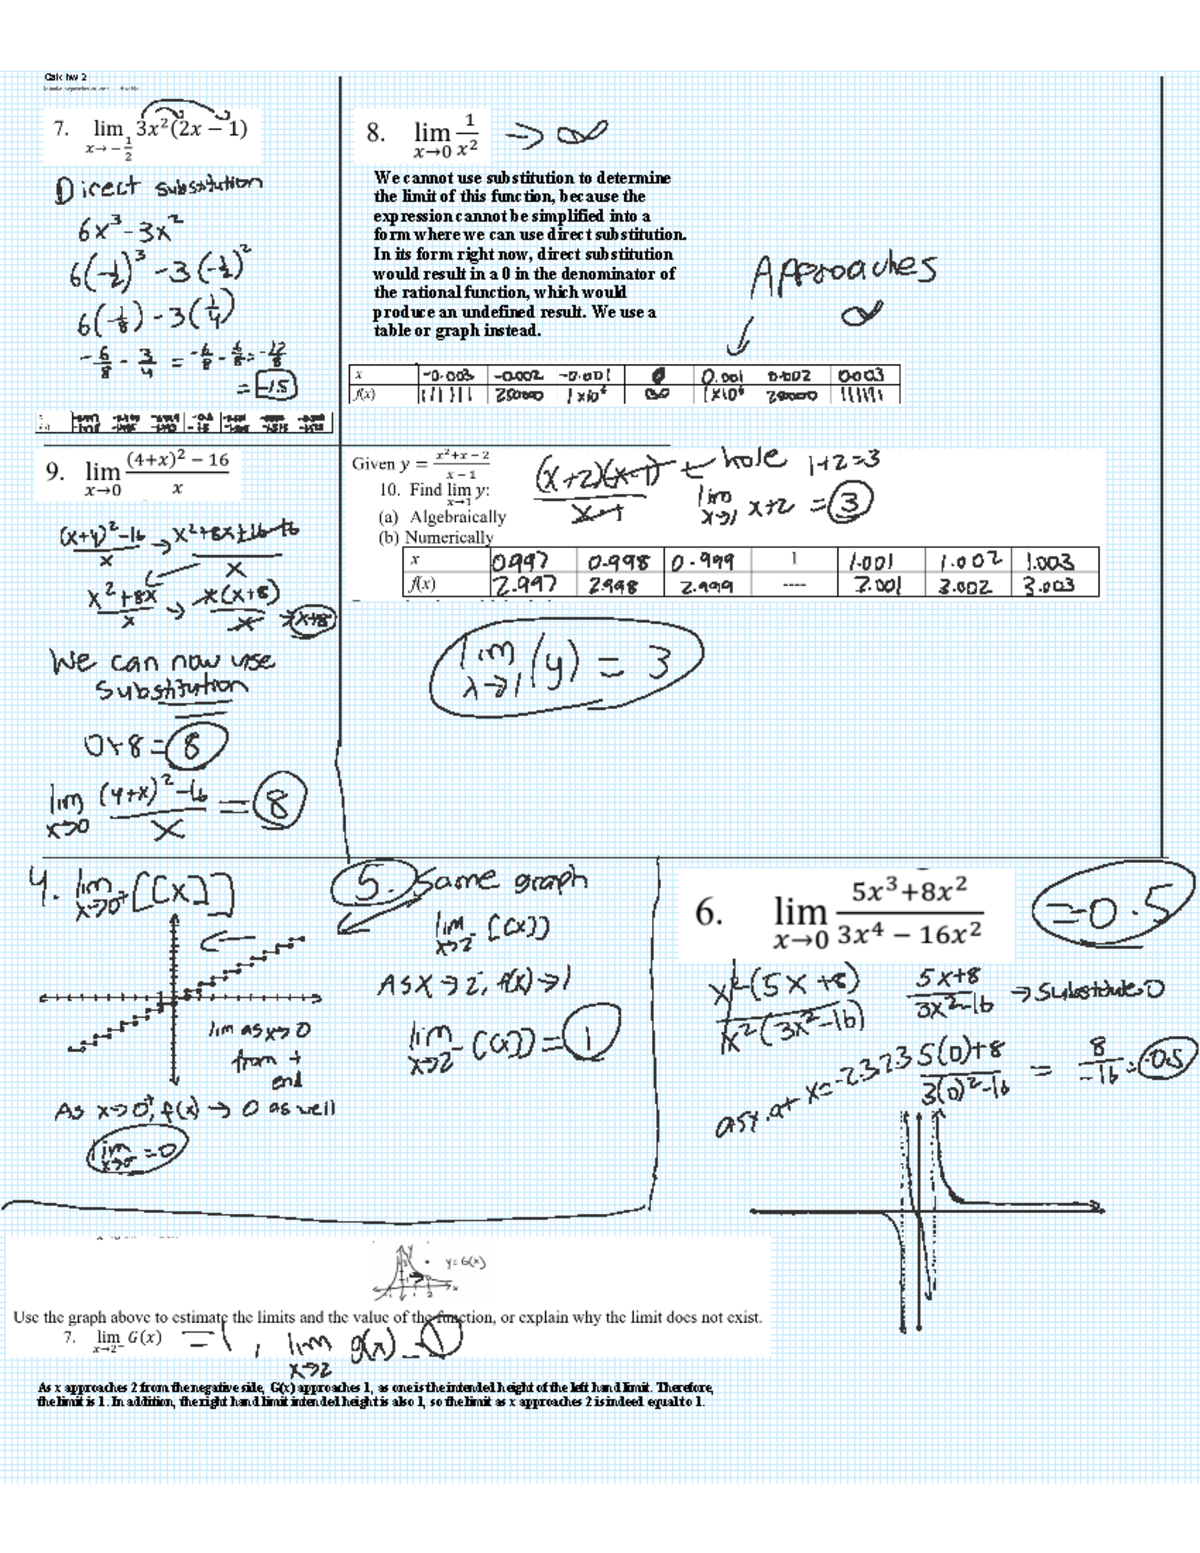 Calc hw 2
7. lim x→-1/2 3x²(2x − 1)
Direct substitution
6x³-3x²
6(-1/2)³ -3(-1/2)²
6(-1/8) -3(1/4)
-6/8 - 3/4 = -6/8 - 6/8 = -12/8
= -1.5
8. lim x→0 1/x² → ∞
We cannot use substitution to determine
the limit of this function, because the
expression cannot be simplified into a
form where we can use direct substitution.
In its form right now, direct substitution
would result in a 0 in the denominator of
the rational function, which would
produce an undefined result. We use a
table or graph instead.
Approaches
∞
x -0.003 -0.002 -0.001 0 0.001 0.002 0.003
f(x) 111111 250000 1x10⁶ ∞ 1x10⁶ 250000 111111
9. lim x→0 (4+x)² − 16 / x
(x+4)²-16 / x → x²+8x+16-16 / x
x²+8x / x → x(x+8) / x → x+8
We can now use
substitution
0+8 = 8
lim x→0 (4+x)²-16 / x = 8
Given y = x²+x−2 / x−1
10. Find lim x→1 y:
(a) Algebraically
(b) Numerically
(x+2)(x-1) / x-1 ← hole 1+2=3
lim x→1 x+2 = 3
x 0.997 0.998 0.999 1 1.001 1.002 1.003
f(x) 2.997 2.998 2.999 ---- 3.001 3.002 3.003
lim x→1 (y) = 3
4. lim x→0⁺ [[x]]
lim as x→0
from +
end
As x→0⁺, f(x) → 0 as well
lim x→0⁺ = 0
5. Same graph
lim x→2⁻ [[x]]
As x→2⁻, f(x)→1
lim x→2⁻ [[x]] = 1
6. lim x→0 5x³+8x² / 3x⁴ − 16x² = -0.5
x²(5x+8) / x²(3x²-16) 5x+8 / 3x²-16 → substitute 0
5(0)+8 / 3(0)²-16 = 8 / -16 = -0.5
y=G(x)
Use the graph above to estimate the limits and the value of the function, or explain why the limit does not exist.
7. lim x→2⁻ G(x) = 1, lim x→2 g(x) = 1
As x approaches 2 from the negative side, G(x) approaches 1, as one is the intended height of the left hand limit. Therefore,
the limit is 1. In addition, the right hand limit intended height is also 1, so the limit as x approaches 2 is indeed equal to 1.